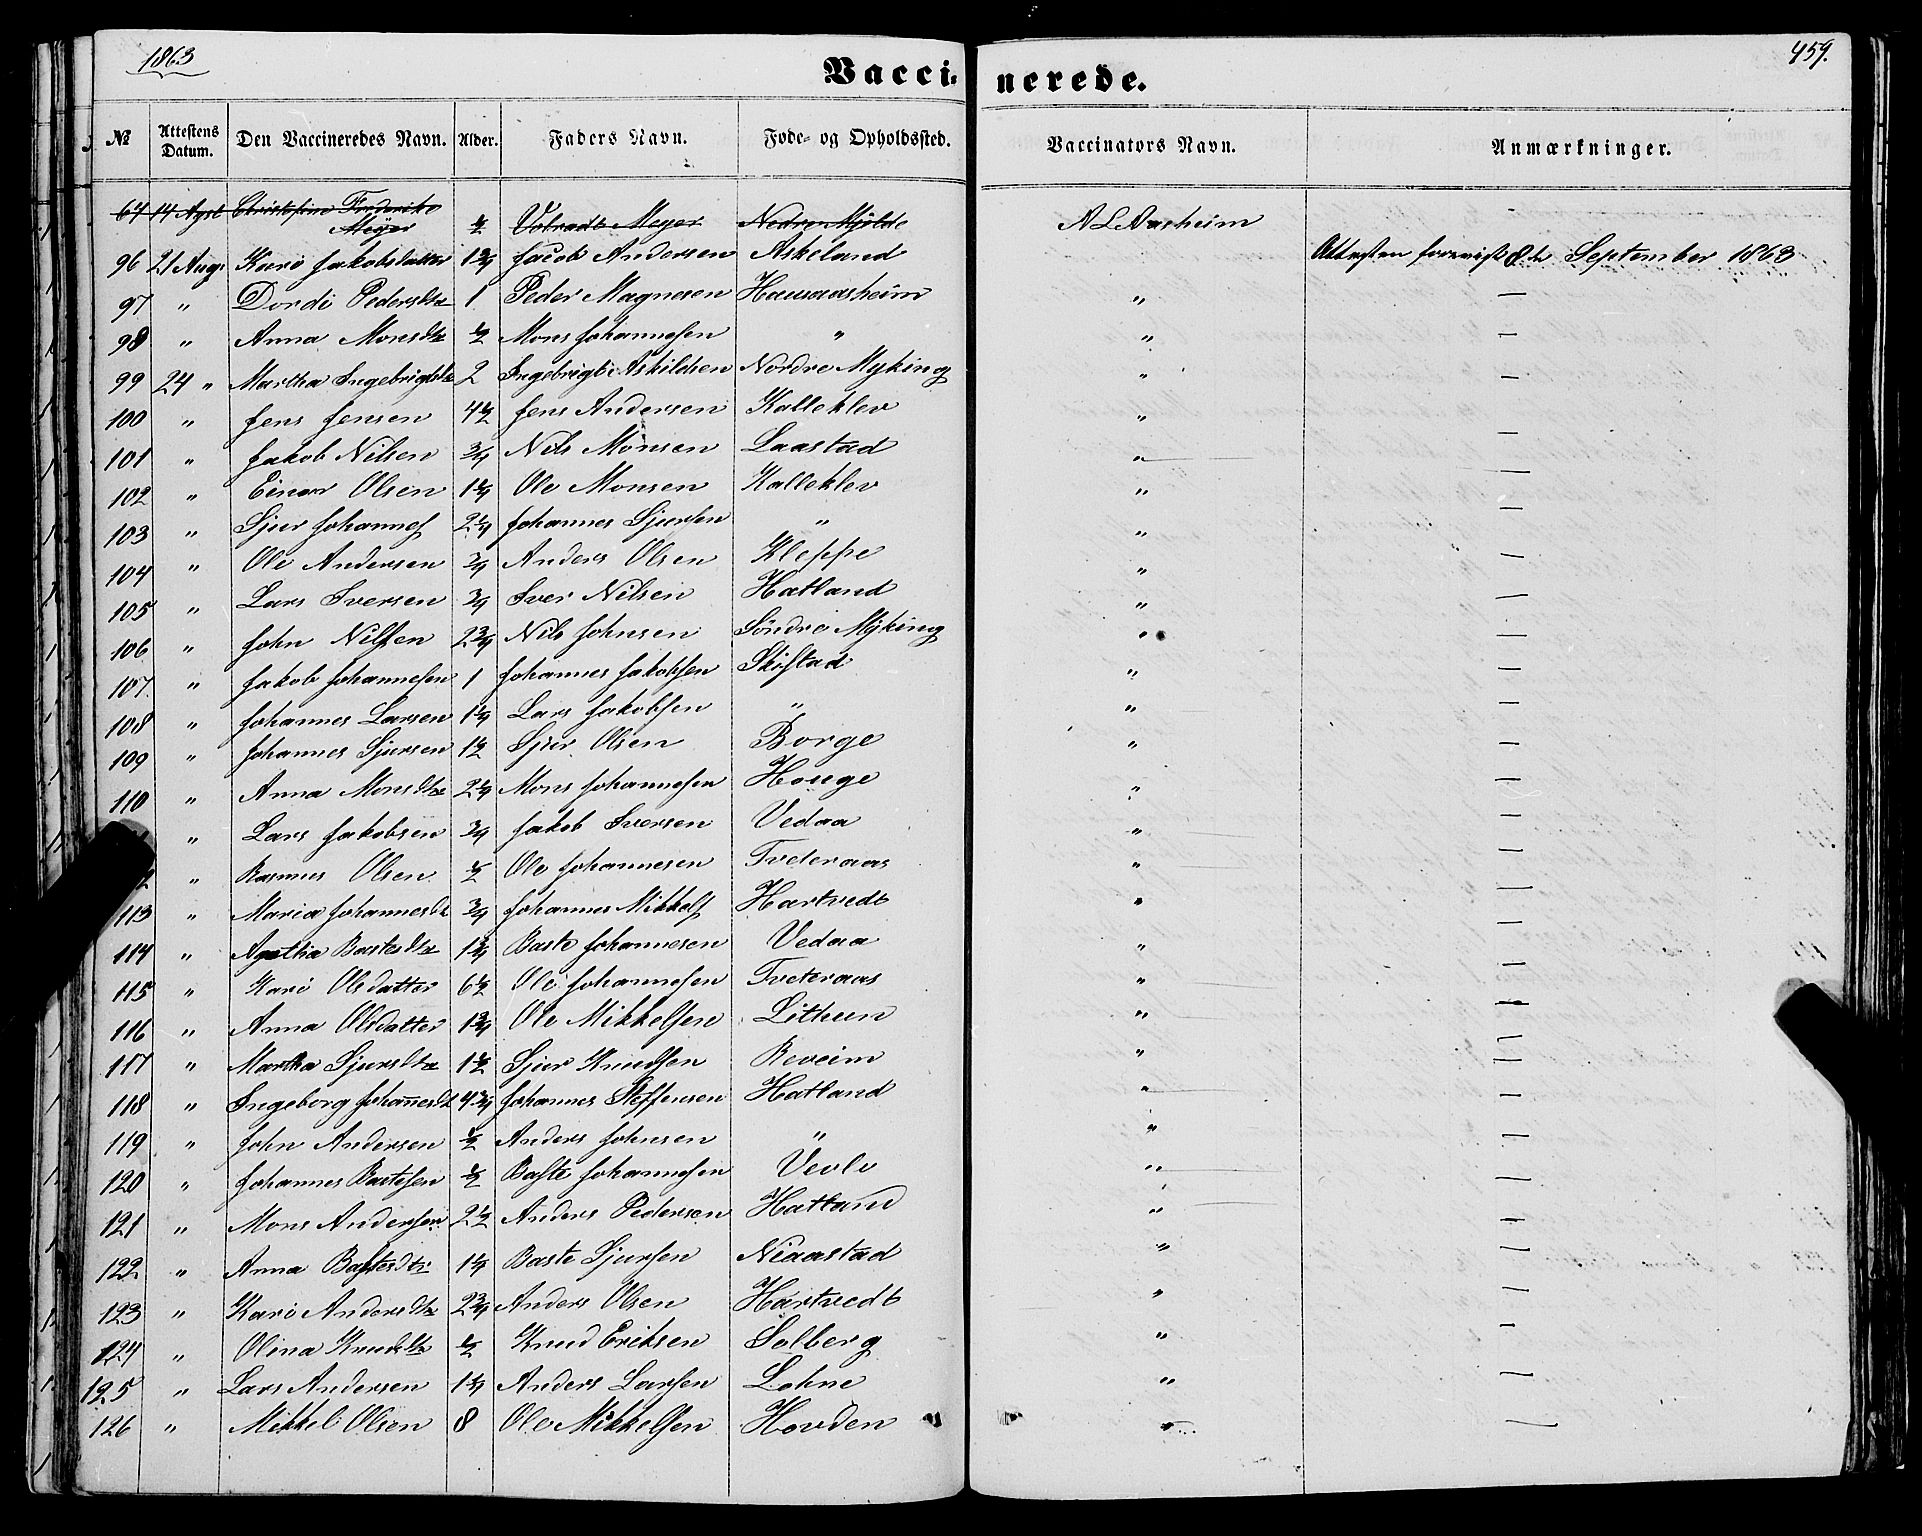 1863
459.
Vaccinerede.
No Attestens Datum. Den Vaccineredes Navn. Alder. Faders Navn. Føde- og Opholdssted. Vaccinators Navn. Anmærkninger.
64 14 Agst Christofine Frederike Meyer ½ Volradt Meyer Nedre Mjølde
96 21 Aug: Kari Jakobsdatter 1¾ Jacob Andersen Askeland A L Aasheim Attesten forevist 8de September 1863
97 " Dordi Pedersdtr 1 Peder Magnesen Hausaasheim " —
98 " Anna Monsdtr ½ Mons Johannesen " " —
99 24 " Martha Ingebrigtsdtr 2 Ingebrigt Askildsen Nordre Myking " —
100 " Jens Jensen 4½ Jens Andersen Kalleklev " —
101 " Jakob Nilsen ¾ Nils Monsen Laastad " —
102 " Einar Olsen 1¼ Ole Monsen Kalleklev " —
103 " Sjur Johannes 2¼ Johannes Sjursen " " —
104 " Ole Andersen ¾ Anders Olsen Kleppe " —
105 " Lars Iversen ¾ Iver Nilsen Hatland " —
106 " John Nilsen 2¾ Nils Johnsen Søndre Myking " —
107 " Jakob Johannesen 1 Johannes Jakobsen Skistad " —
108 " Johannes Larsen 1¼ Lars Jakobsen " " —
109 " Johannes Sjursen 1½ Sjur Olsen Borge " —
110 " Anna Monsdtr 2¼ Mons Johannesen Houge " —
" Lars Jakobsen ¾ Jakob Iversen Vedaa " —
2 " Rasmus Olsen ½ Ole Johannesen Tveteraas " —
113 " Maria Johannesdt ¾ Johannes Mikkels Hartvedt " —
114 " Agatha Bastesdtr 1¾ Baste Johannesen Vedaa " —
115 " Kari Olsdatter 6½ Ole Johannesen Tveteraas " —
116 " Anna Olsdatter 1¾ Ole Mikkelsen Lithun " —
117 " Martha Sjursdtr 1½ Sjur Knudsen Reveim " —
118 " Ingeborg Johannesdt 4¾ Johannes Steffensen Hatland " —
119 " John Andersen ½ Anders Johnsen " " —
120 " Johannes Bastesen ½ Baste Johannesen Vevle " —
121 " Mons Andersen 2½ Anders Pedersen Hatland " —
122 " Anna Bastesdtr 1¼ Baste Sjursen Niaastad " —
123 " Kari Andersdtr 2¾ Anders Olsen Hartvedt " —
124 " Olina Knudsdtr ½ Knud Eriksen Solberg " —
125 " Lars Andersen 1¾ Anders Larsen Lohne " —
126 " Mikkel Olsen 8 Ole Mikkelsen Hovden " —